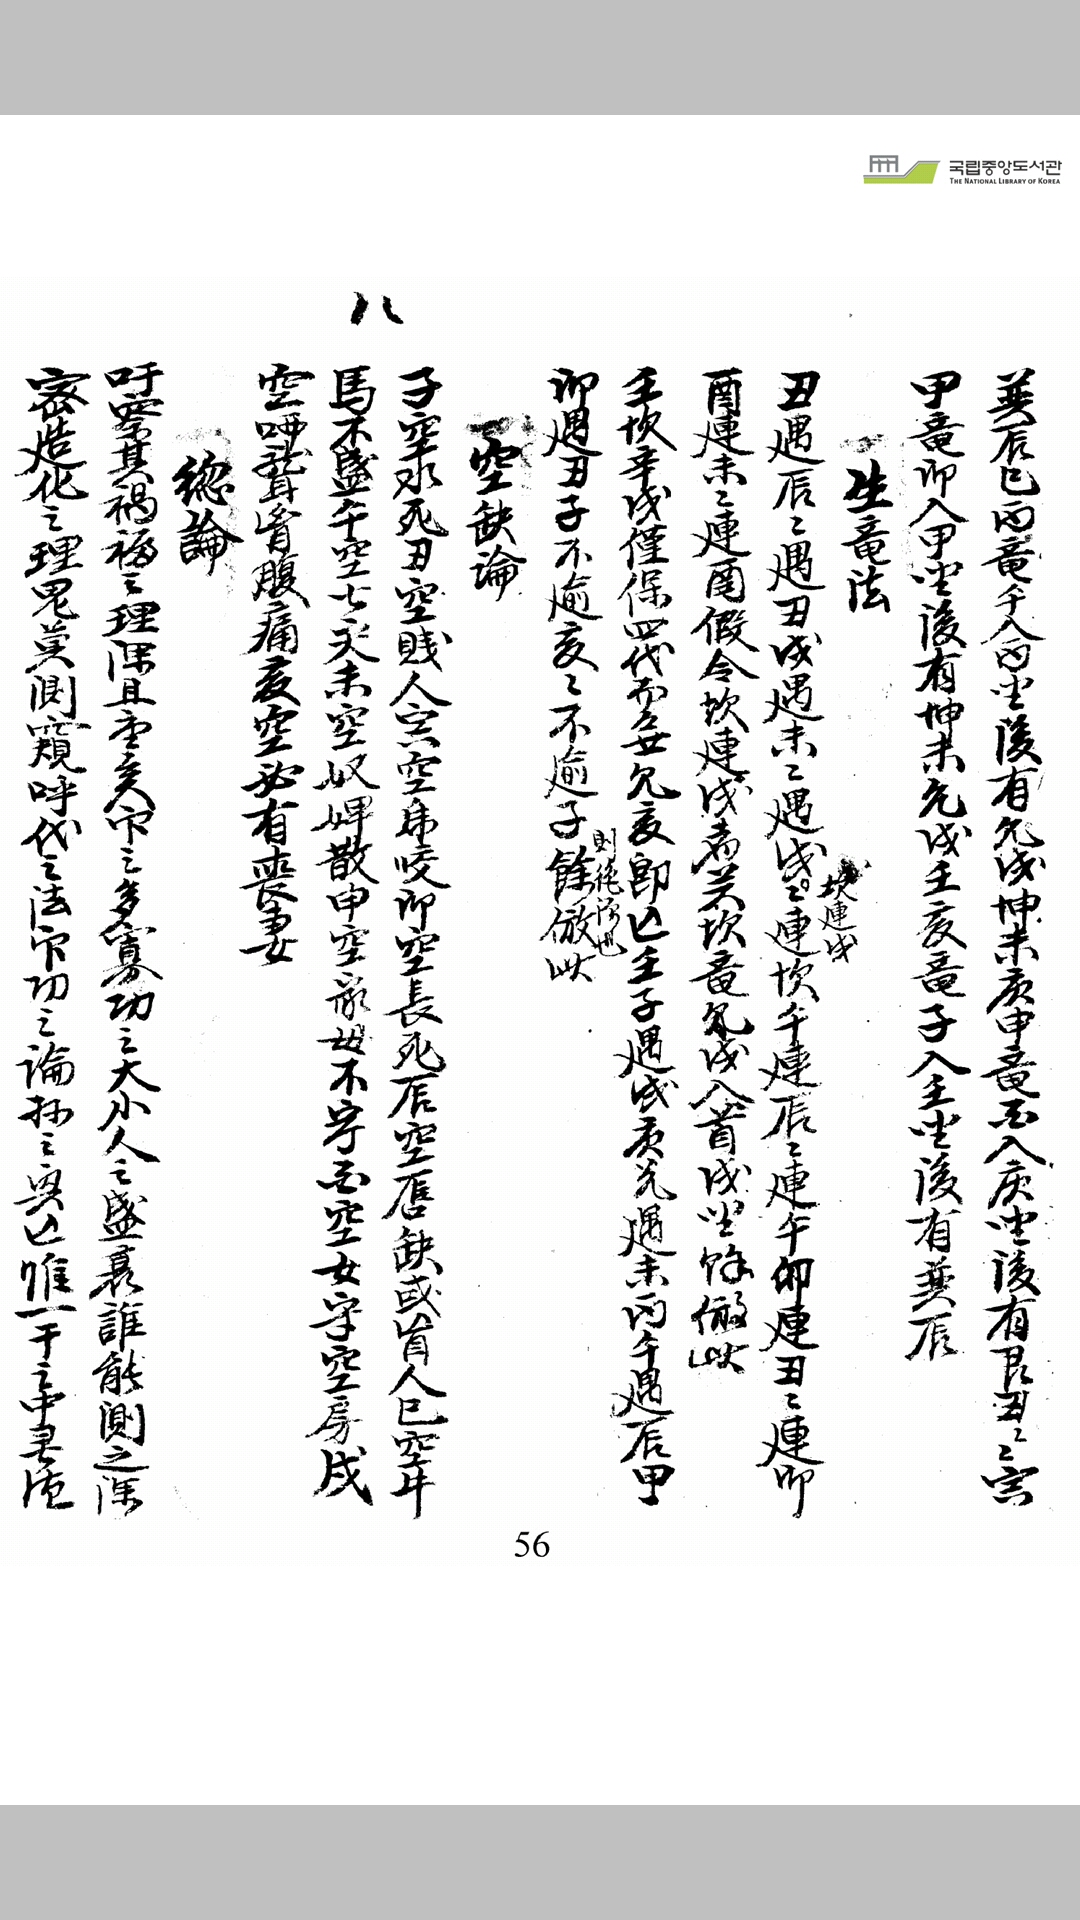 국립중앙도서관
THE NATIONAL LIBRARY OF KOREA
八
巽辰巳丙竜午入丙坐後有乾戌坤未庚申竜酉入庚坐後有艮丑〻寅
甲竜卯入甲坐後有坤未乾戌壬亥竜子入壬坐後有巽辰
生竜法
丑遇辰〻遇丑戌遇未〻遇戌〻連坎午連辰〻連午卯連丑〻連卯
坎連戌
酉連未〻連酉假令坎連戌者若坎竜乾戌入首戌坐餘倣此
壬坎辛戌僅保四代而乾亥卽亡壬子遇戌庚兌遇未丙午遇辰甲
卯遇丑子不逾亥〻不逾子餘倣此
則絶也
空缺論
子空水死丑空賤人寅空虎咬卯空長死辰空唇缺或盲人巳空牛
馬不盛午空七未空奴婢散申空母不寧酉空女守空房戌
空啞聾胥腹痛亥空必有喪妻
總論
吁寧其禍福之理深且重矣之多寡功之大小人之盛衰誰能測之深
密造化之理鬼莫測窺呼代之法功之論之奧亡唯一干之中
56